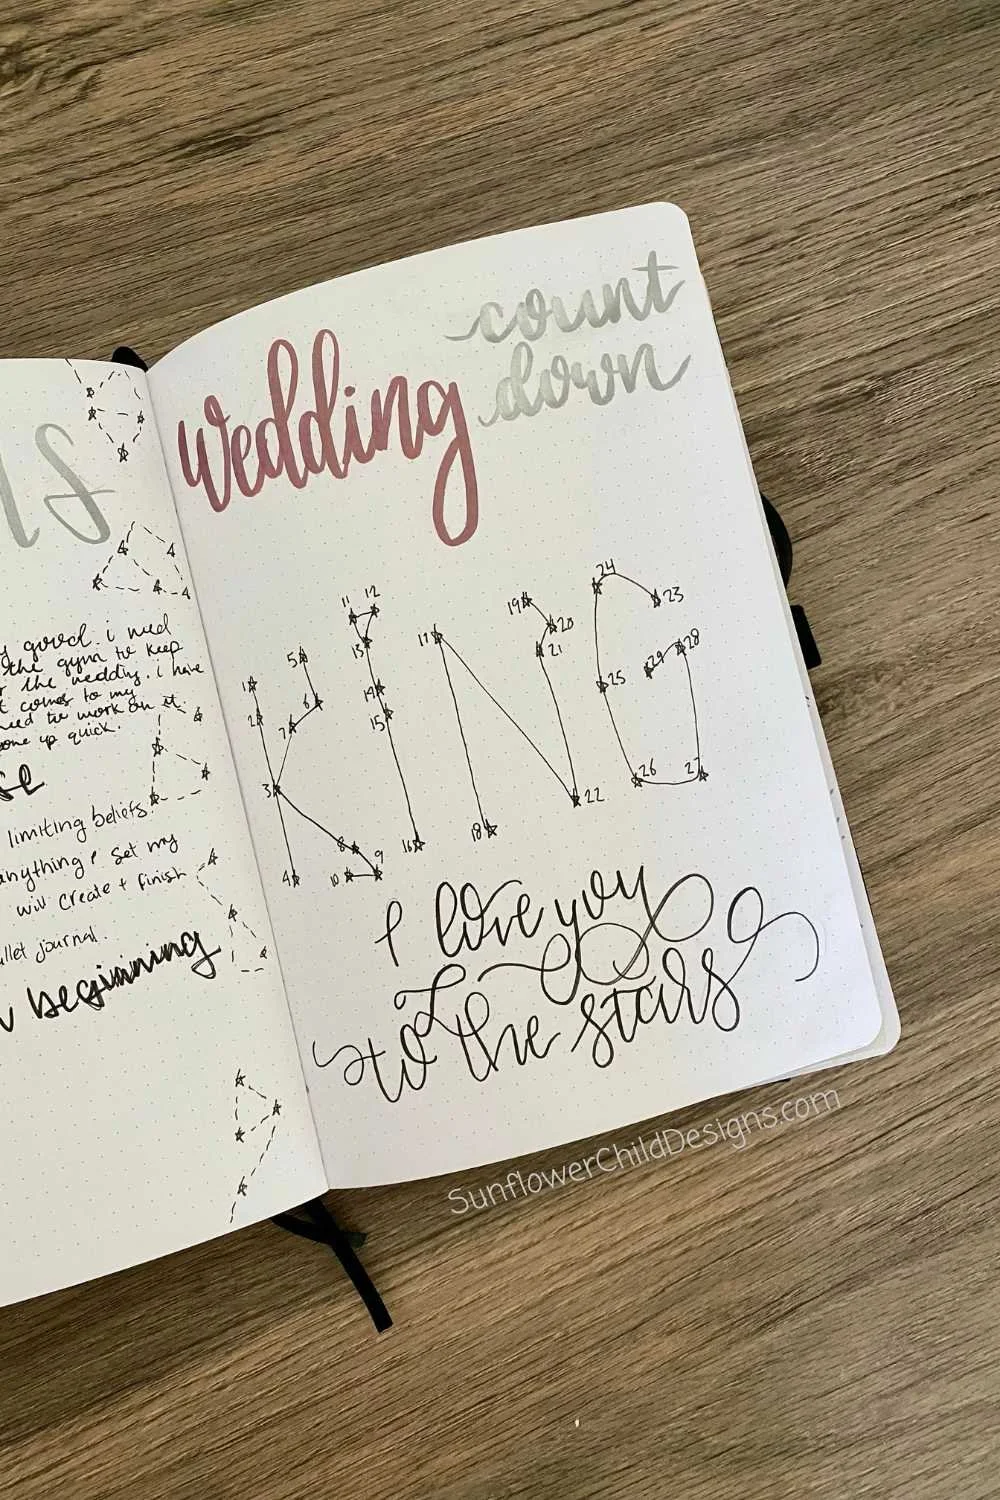 y good. i need
the gym to keep
the wedding. i have
t comes to my
need to work on it.
come up quick.
limiting beliefs.
anything & set my
will create + finish
llet journal.
beginning
wedding
count
down
1
2
3
4
5
6
7
8
9
10
11
12
13
14
15
16
17
18
19
20
21
22
23
24
25
26
27
28
29
I love you
to the stars
SunflowerChildDesigns.com